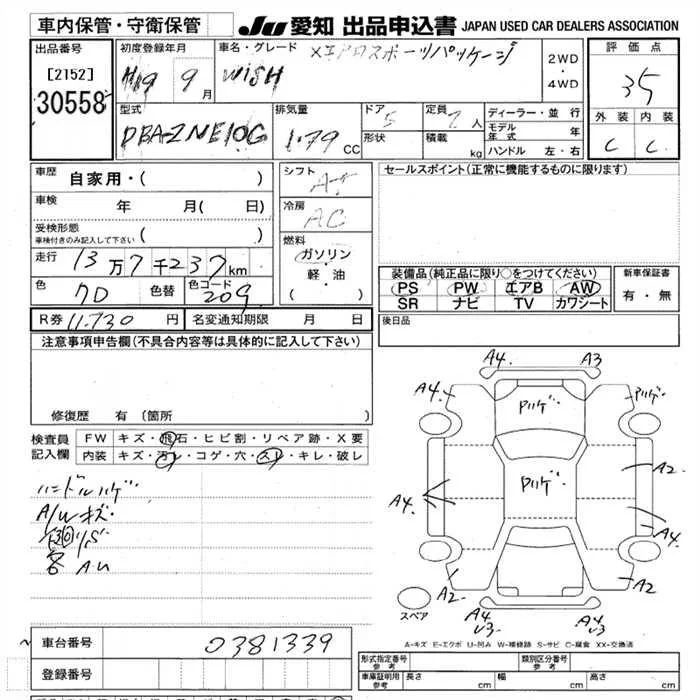 車内保管・守衛保管 JU 愛知 出品申込書 JAPAN USED CAR DEALERS ASSOCIATION
出品番号 初度登録年月 車名・グレード Xエアロスポーツパッケージ 2WD・4WD 評価点
[2152] H19 9月 WISH 35
30558
型式 排気量 ドア 5 定員 7人 ディーラー・並行 外装 内装
DBA-ZNE10G 1.79 CC 形状 積載 kg モデル年式 年 C C
ハンドル 左・右
車歴 自家用・( ) シフト AT セールスポイント(正常に機能するものに限ります)
車検 年 月( 日) 冷房 AC
受検形態 車検付きのみ記入して下さい ( ) 燃料
走行 13万7千237km ガソリン・軽・油 ( )
装備品(純正品に限り○をつけてください) 新車保証書
色 7D 色替 色コード 209 PS PW エアB AW 有・無
SR ナビ TV カワシート
R券 11.730 円 名変通知期限 月 日 後日品
注意事項申告欄(不具合内容等は具体的に記入して下さい)
修復歴 有 (箇所
検査員記入欄 FW キズ・飛石・ヒビ割・リペア跡・X要
内装 キズ・汚レ・コゲ・穴・スレ・キレ・破レ
ハンドルハゲ
A/Wキズ
A4. A3
A4. アリハゲ
A2
A4. A4
A2 A2
A4 U3 A4 U3
スペア
A-キズ E-エクボ U-凹み W-補修跡 S-サビ C-腐食 XX-交換済
車台番号 0381339
登録番号
形式指定番号 参考 類別区分番号 参考
車庫証明用 参考 長さ cm 幅 cm 高さ cm